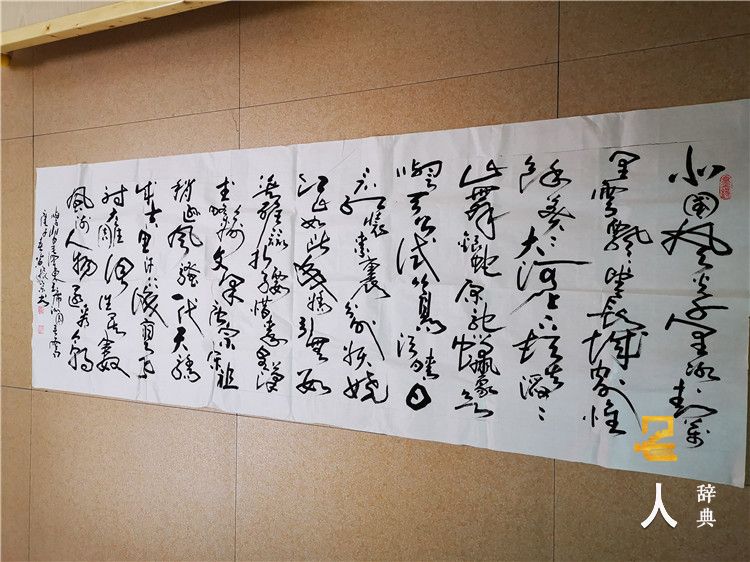 北国风光千里冰封万
里雪飘望长城内外惟
余莽莽大河上下顿失滔滔
山舞银蛇原驰蜡象欲
与天公试比高须晴日
看红装素裹分外妖娆
江山如此多娇引无数
英雄竞折腰惜秦皇汉
武略输文采唐宗宋祖
稍逊风骚一代天骄
成吉思汗只识弯弓
射大雕俱往矣数
风流人物还看今朝
毛泽东 沁园春雪
庚子
人
辞典